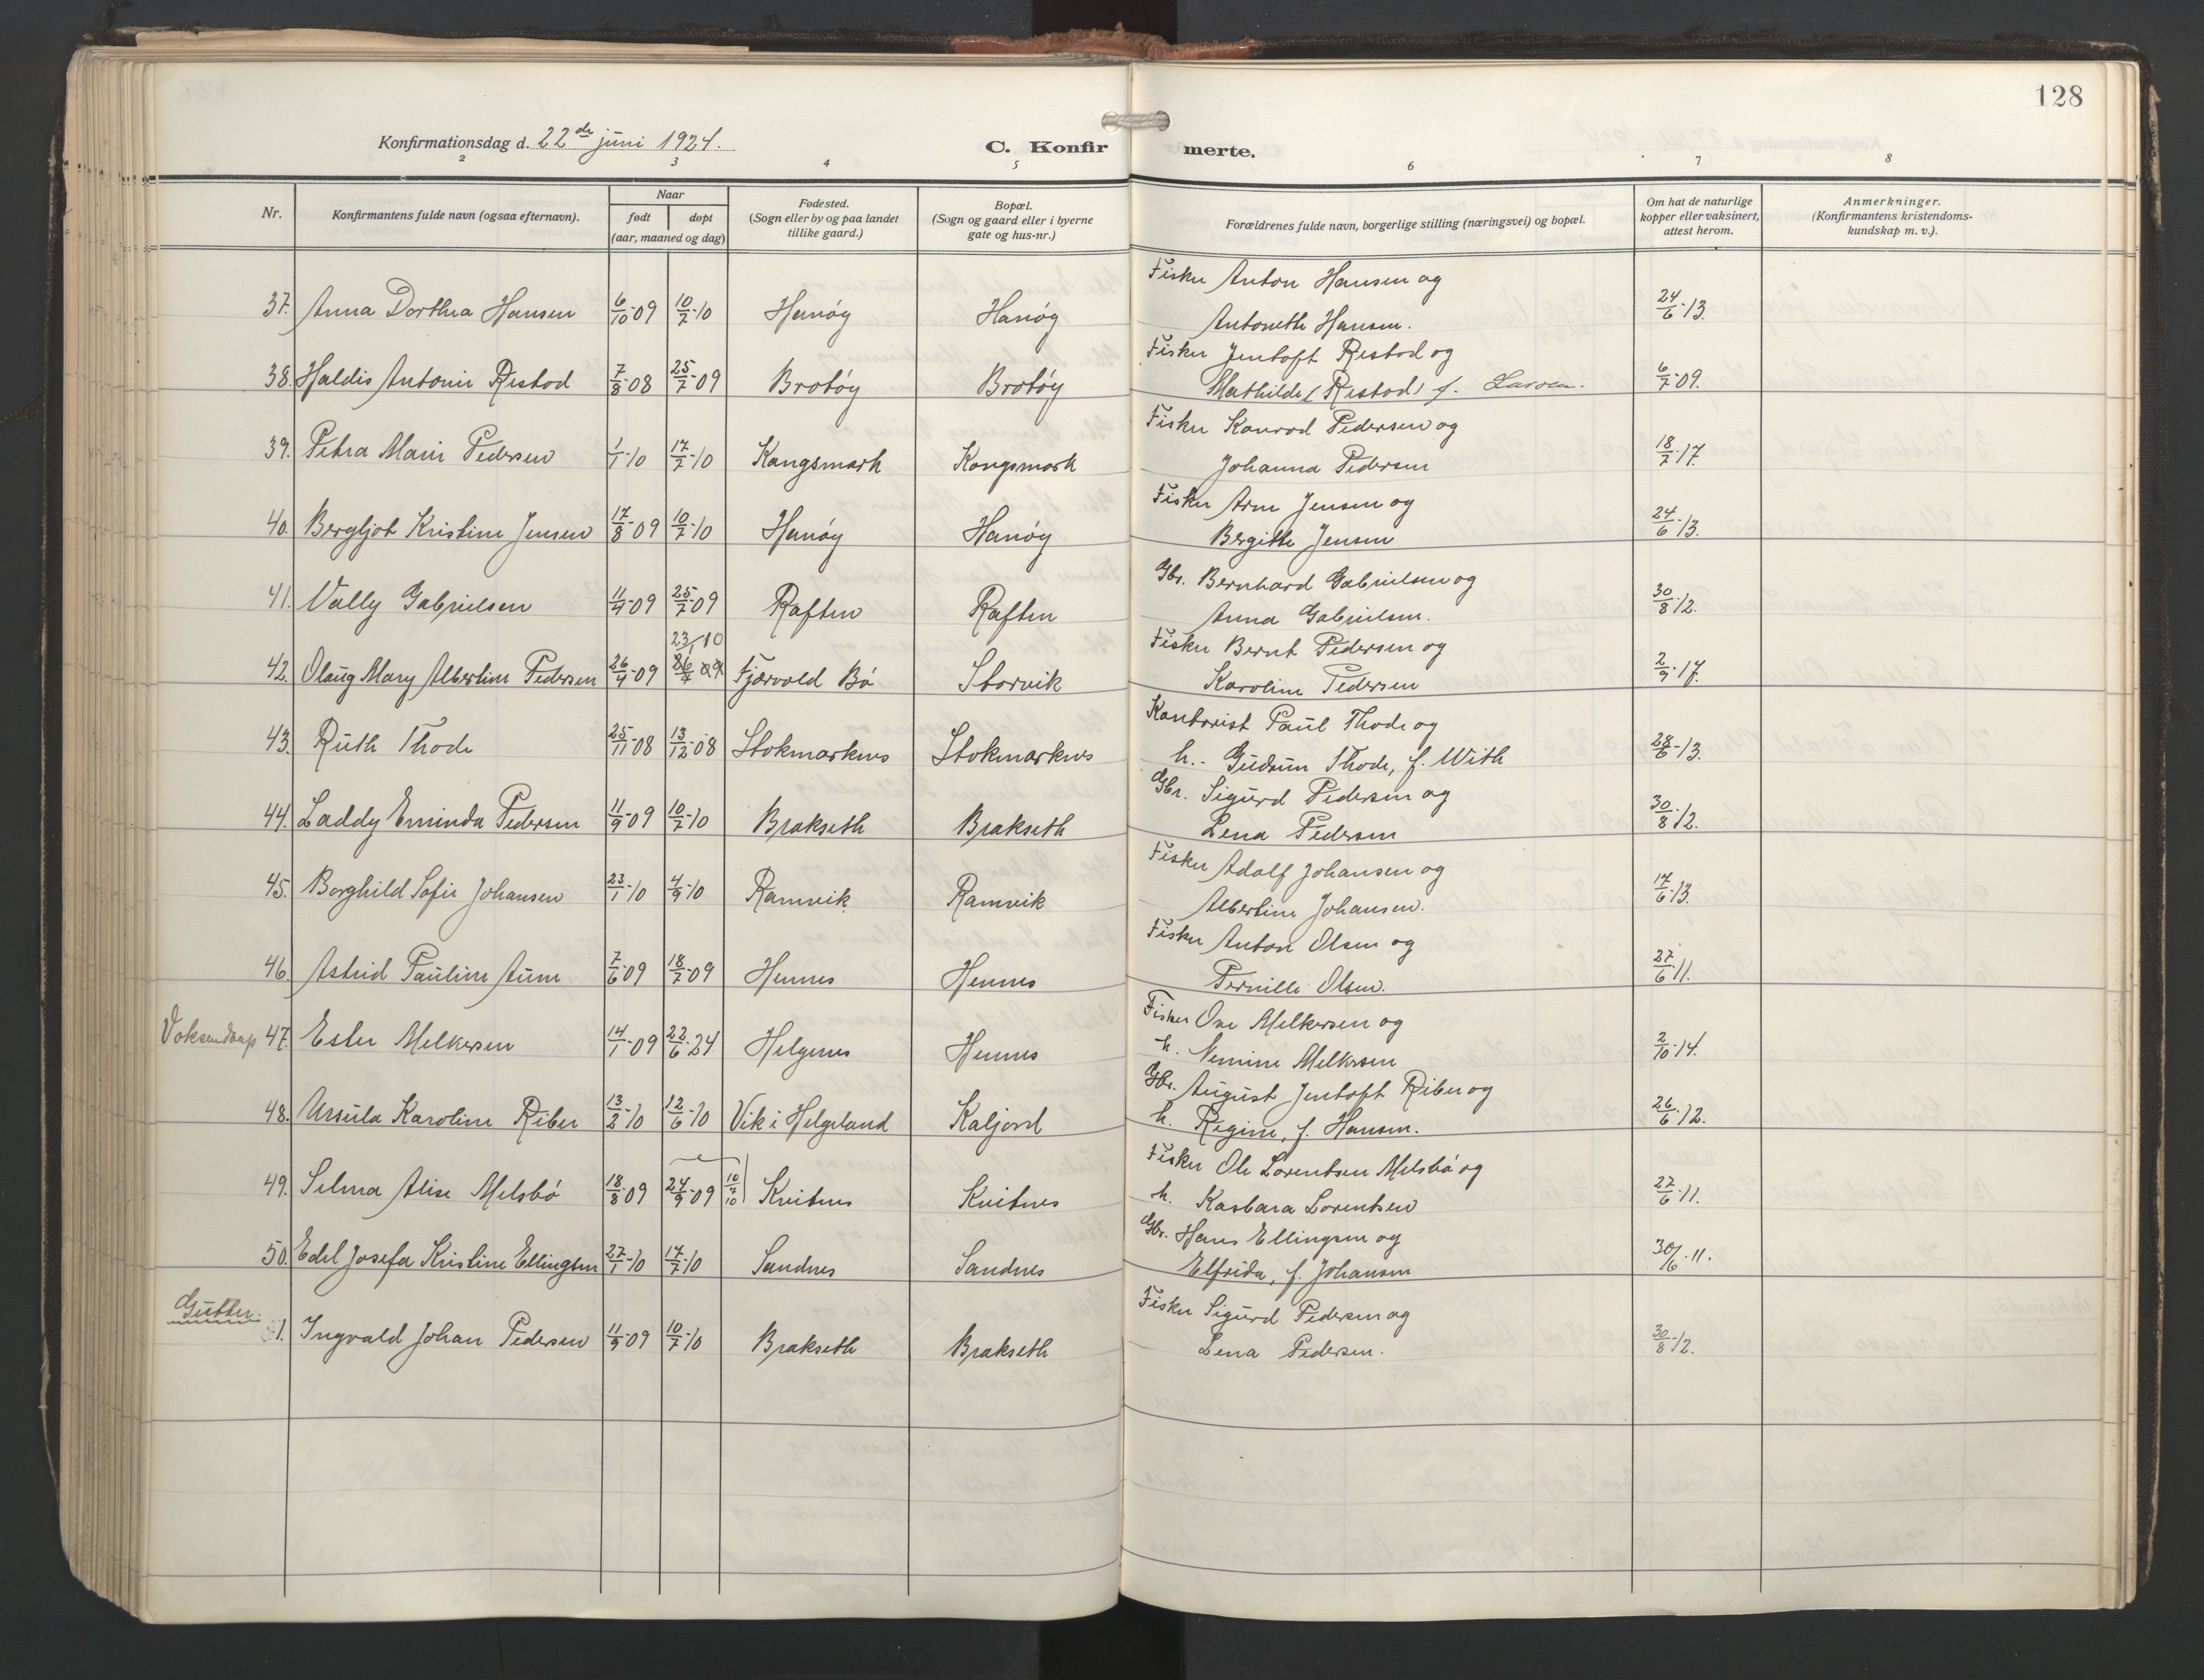 128
Konfirmationsdag d. 22de juni 1924.
C. Konfirmerte.
2 3 4 5 6 7 8
Nr.
Konfirmantens fulde navn (ogsaa efternavn).
Naar
født døpt
(aar, maaned og dag)
Fødested.
(Sogn eller by og paa landet
tillike gaard.)
Bopæl.
(Sogn og gaard eller i byerne
gate og hus-nr.)
Forældrenes fulde navn, borgerlige stilling (næringsvei) og bopæl.
Om hat de naturlige
kopper eller vaksinert,
attest herom.
Anmerkninger.
(Konfirmantens kristendoms-
kundskap m. v.).
Fisker Anton Hansen og
37. Anna Dorthea Hansen 6/10-09 10/7-10 Hanøy Hanøy Antonette Hansen. 24/6-13.
Fisker Jentoft Restad og
38. Haldis Antonie Restad 7/8-08 25/7-09 Brotøy Brotøy Mathilde (Restad) f. Larsen. 6/7-09.
Fisker Konrad Pedersen og
39. Petra Marie Pedersen 1/1-10 17/7-10 Kongsmark Kongsmark Johanna Pedersen 18/7-17.
Fisker Arne Jensen og
40. Bergljot Kristine Jensen 17/8-09 10/7-10 Hanøy Hanøy Bergitte Jensen 24/6-13.
Gbr. Bernhard Gabrielsen og
41. Vally Gabrielsen 11/4-09 25/7-09 Raften Raften Anna Gabrielsen. 30/8-12.
23/1 10
Fisker Bernt Pedersen og
42. Olaug Mary Albertine Pedersen 26/4-09 26/7 09 Fjærvold Bø Storvik Karoline Pedersen 2/9-17.
Kontorist Paul Thode og
43. Ruth Thode 25/11-08 13/12-08 Stokmarknes Stokmarknes h.- Gudrun Thode, f. With 28/6-13.
Gbr. Sigurd Pedersen og
44. Laddy Eminda Pedersen 11/9-09 10/7-10 Brakseth Brakseth Lena Pedersen 30/8-12.
Fisker Adolf Johansen og
45. Borghild Sofie Johansen 23/1-10 4/9-10 Ramvik Ramvik Albertine Johansen. 17/6-13.
Fisker Anton Olsen og
46. Astrid Pauline Aune 7/6-09 18/7-09 Hennes Hennes Pernille Olsen. 27/6-11.
Fisker Ove Melkersen og
Voksendaap 47. Ester Melkersen 14/1-09 22/6-24 Helgenes Hennes h. Nemine Melkersen 2/10-14.
Gbr. August Jentoft Riber og
48. Ursula Karoline Riber 13/2-10 12/6-10 Vik i Helgeland Kaljord h. Regine, f. Hansen. 26/6-12.
Fisker Ole Lorentsen Melsbø og
49. Selma Alise Melsbø 18/8-09 24/9-09 10/7 10 Kvitnes Kvitnes h. Kasbara Lorentsen 27/6-11.
Gbr. Hans Ellingsen og
50. Edel Josefa Kristine Ellingsen 27/1-10 17/7-10 Sandnes Sandnes Elfrida, f. Johansen 30/6-11.
Gutter.
Fisker Sigurd Pedersen og
1. Ingvald Johan Pedersen 11/9-09 10/7-10 Brakseth Brakseth Lena Pedersen. 30/8-12.